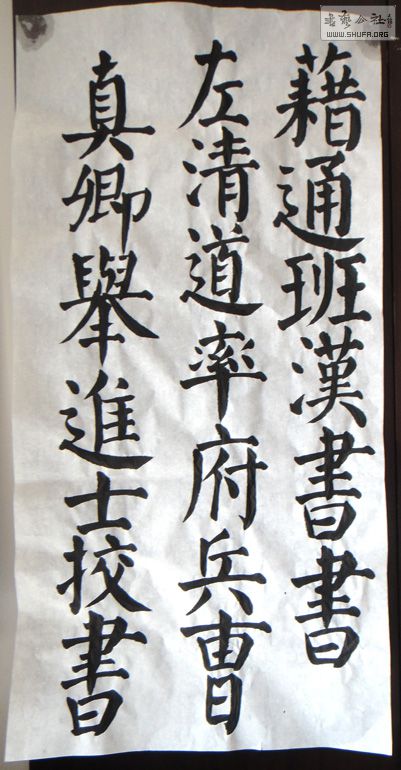 藉通班漢書書
左清道率府兵曹
真卿舉進士挍書
書藝公社
WWW.SHUFA.ORG